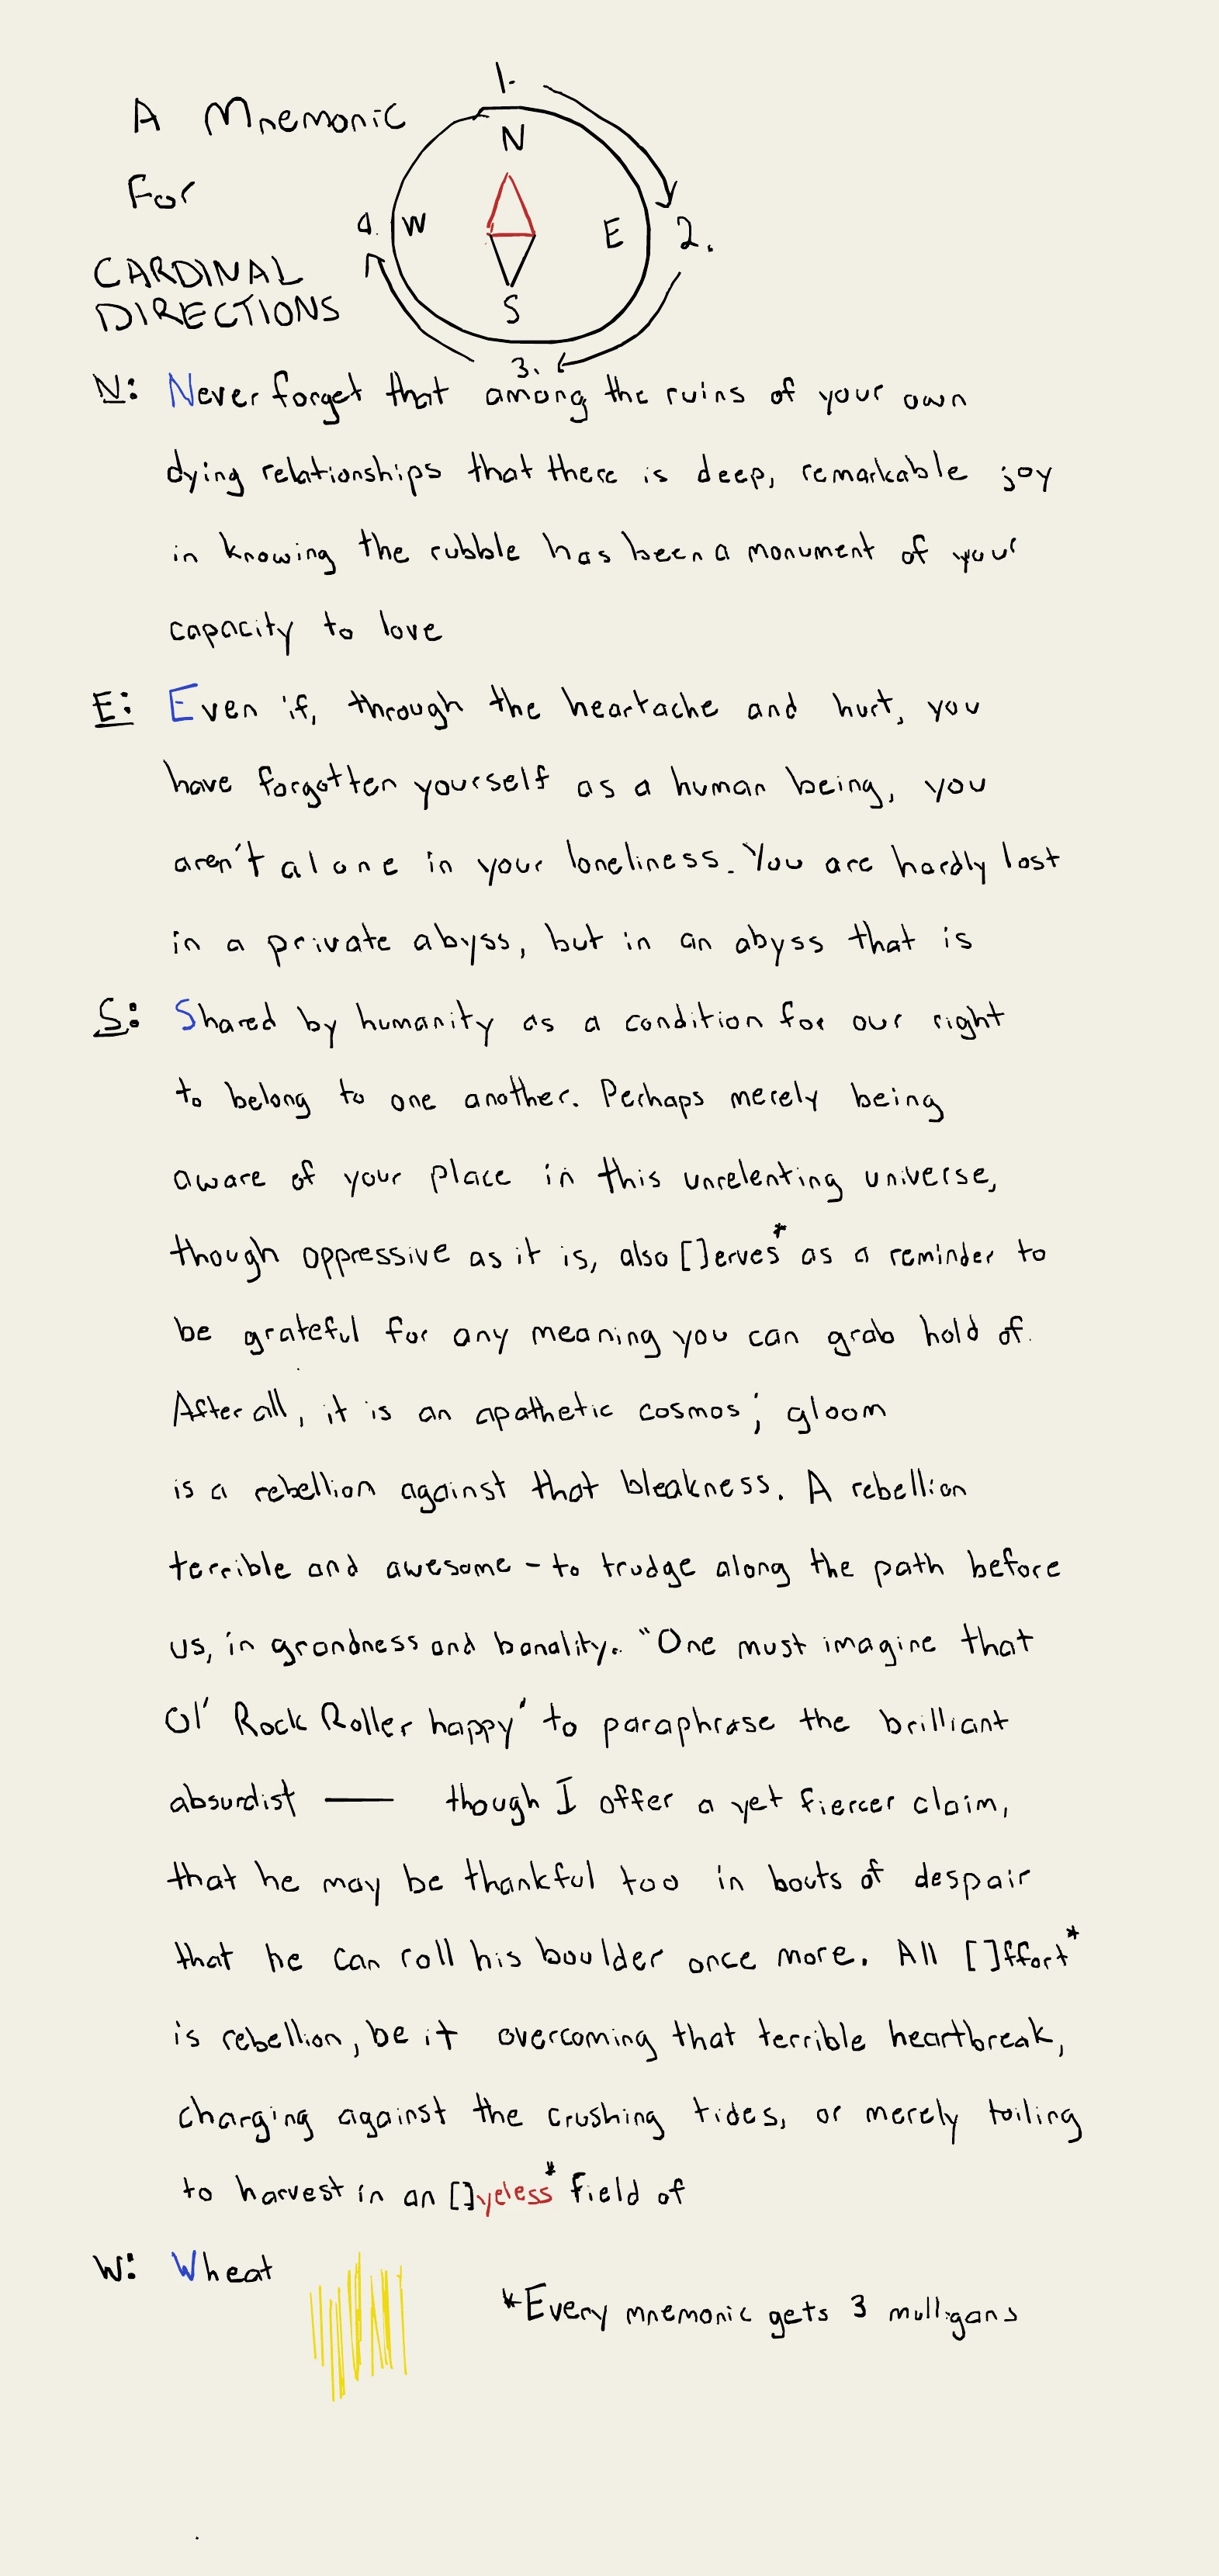 A Mnemonic
For
CARDINAL
DIRECTIONS
1.
N
4. W E 2.
S
3.
N: Never forget that among the ruins of your own
dying relationships that there is deep, remarkable joy
in knowing the rubble has been a monument of your
capacity to love
E: Even if, through the heartache and hurt, you
have forgotten yourself as a human being, you
aren't alone in your loneliness. You are hardly lost
in a private abyss, but in an abyss that is
S: Shared by humanity as a condition for our right
to belong to one another. Perhaps merely being
aware of your place in this unrelenting universe,
though oppressive as it is, also []erves* as a reminder to
be grateful for any meaning you can grab hold of.
After all, it is an apathetic cosmos; gloom
is a rebellion against that bleakness. A rebellion
terrible and awesome - to trudge along the path before
us, in grandness and banality. "One must imagine that
Ol' Rock Roller happy' to paraphrase the brilliant
absurdist — though I offer a yet fiercer claim,
that he may be thankful too in bouts of despair
that he can roll his boulder once more. All []ffort*
is rebellion, be it overcoming that terrible heartbreak,
charging against the crushing tides, or merely toiling
to harvest in an []yeless* field of
W: Wheat
*Every mnemonic gets 3 mulligans